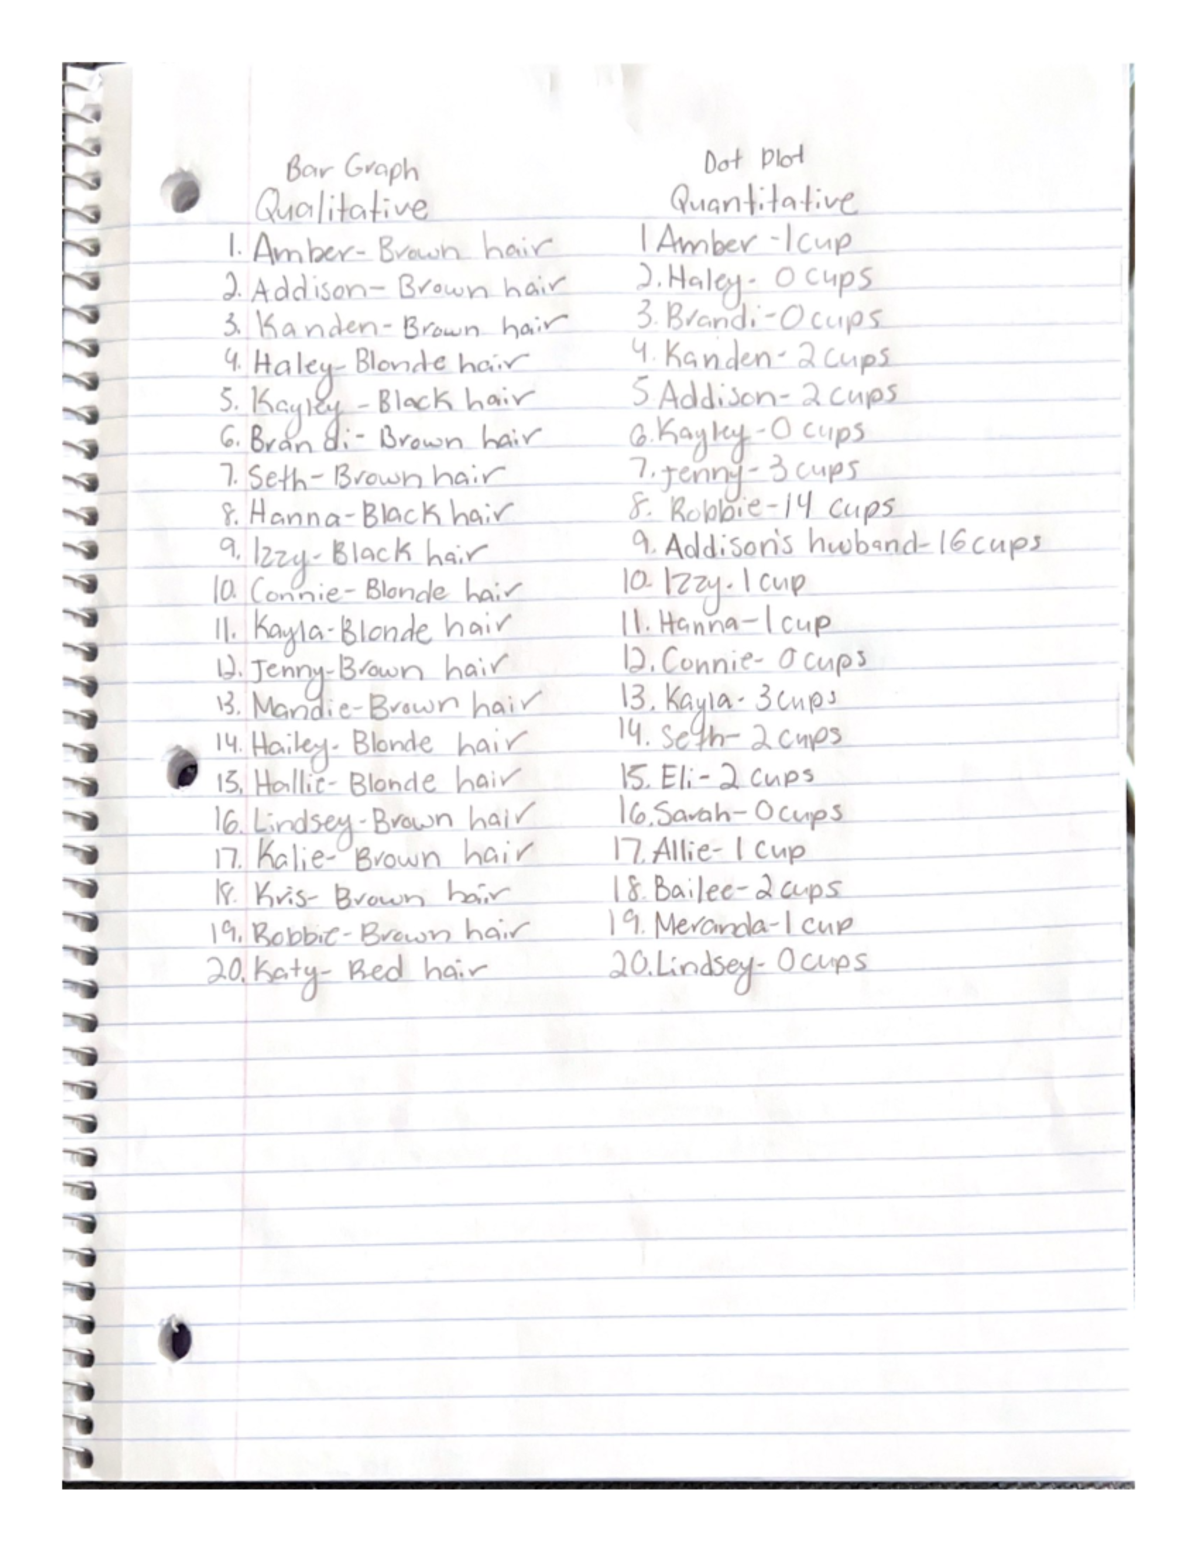 Bar Graph
Qualitative
1. Amber- Brown hair
2. Addison- Brown hair
3. Kanden- Brown hair
4. Haley- Blonde hair
5. Kayley - Black hair
6. Brandi- Brown hair
7. Seth- Brown hair
8. Hanna- Black hair
9. Izzy- Black hair
10. Connie- Blonde hair
11. Kayla- Blonde hair
12. Jenny- Brown hair
13. Mandie- Brown hair
14. Hailey- Blonde hair
15. Hallie- Blonde hair
16. Lindsey- Brown hair
17. Kalie- Brown hair
18. Kris- Brown hair
19. Robbie- Brown hair
20. Katy- Red hair
Dot Plot
Quantitative
1 Amber - 1 cup
2. Haley- 0 cups
3. Brandi- 0 cups
4. Kanden- 2 cups
5 Addison- 2 cups
6. Kayley- 0 cups
7. Jenny- 3 cups
8. Robbie- 14 cups
9. Addison's husband- 16 cups
10. Izzy- 1 cup
11. Hanna- 1 cup
12. Connie- 0 cups
13. Kayla- 3 cups
14. Seth- 2 cups
15. Eli- 2 cups
16. Sarah- 0 cups
17. Allie- 1 cup
18. Bailee- 2 cups
19. Meranda- 1 cup
20. Lindsey- 0 cups